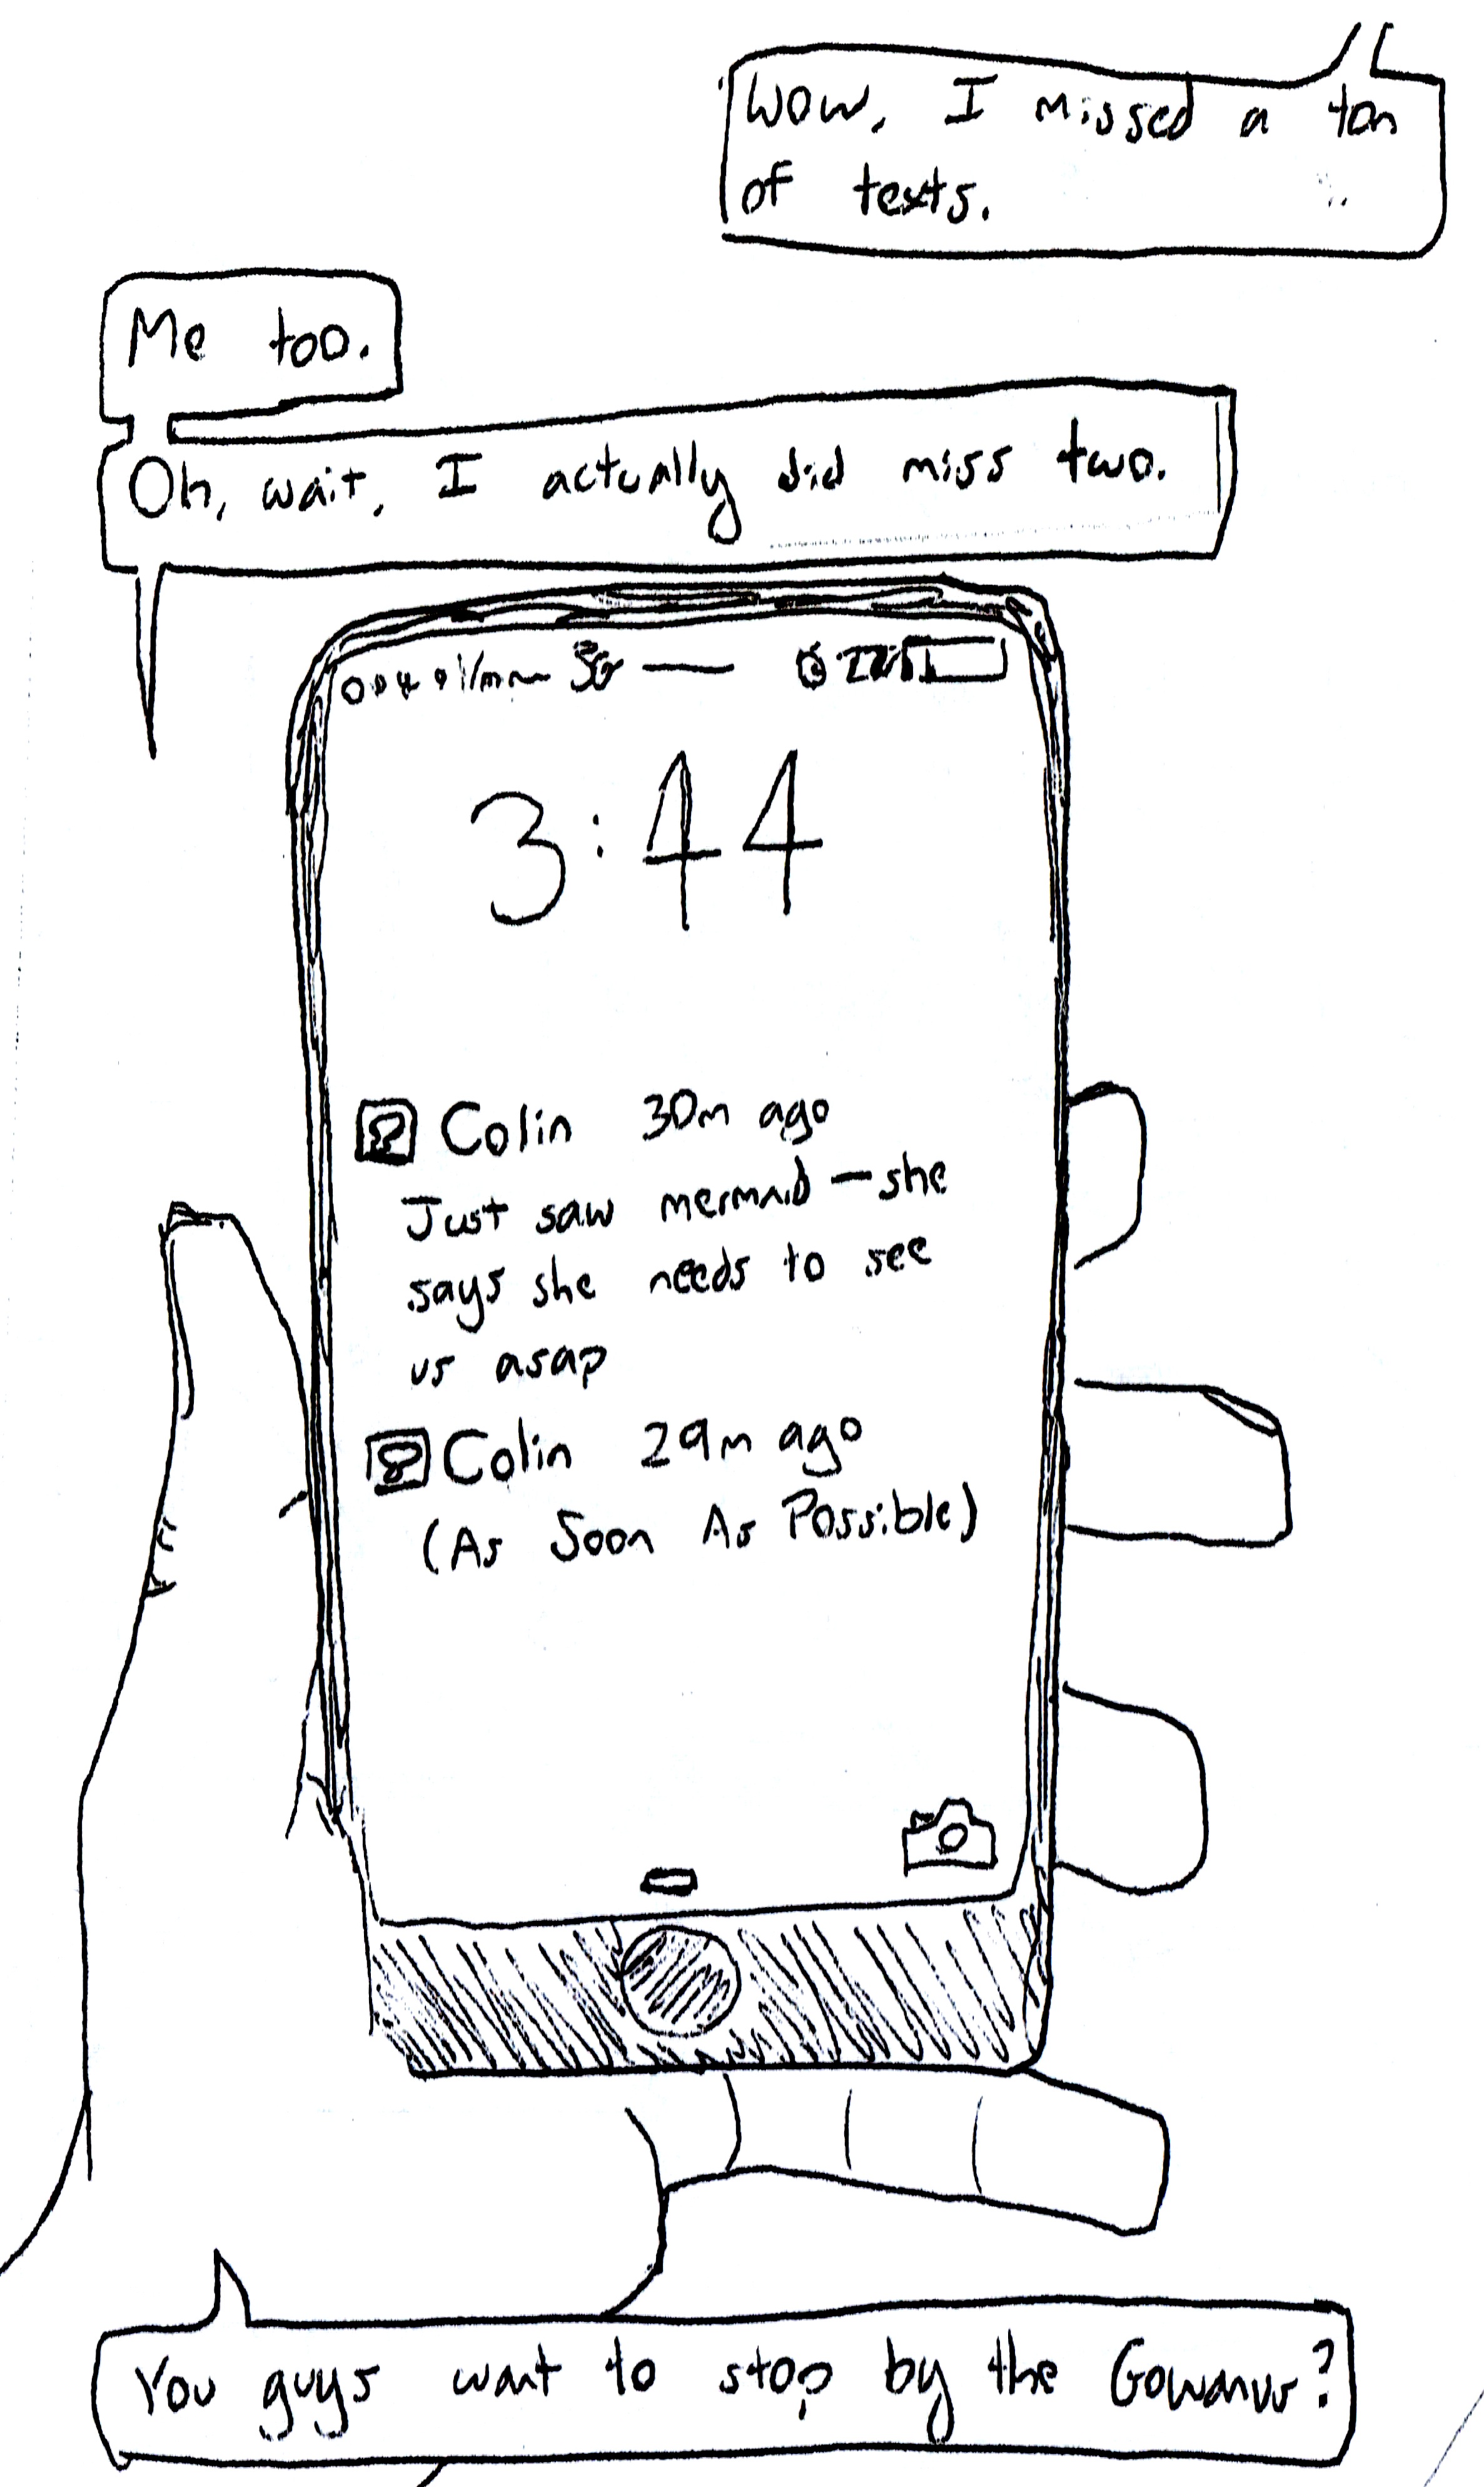 Wow, I missed a ton
of texts.
Me too.
Oh, wait, I actually did miss two.
3G
3:44
Colin 30m ago
Just saw mermaid — she
says she needs to see
us asap
Colin 29m ago
(As Soon As Possible)
You guys want to stop by the Gowanus?